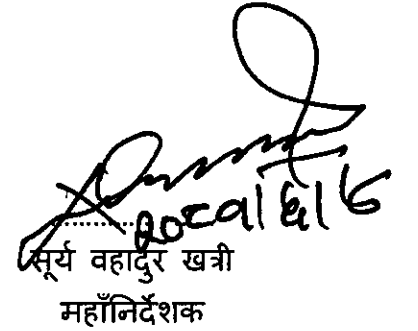 २०८१।६।८
सूर्य वहादुर खत्री
महाँनिर्देशक